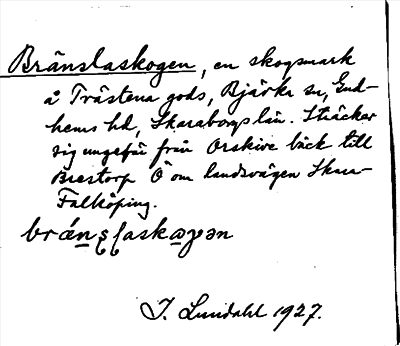 Bränslaskogen, en skogsmark
å Trästena gods, Bjärka sn, Gud-
hems hd, Skaraborgs län. Sträcker
sig ungefär från Orskive bäck till
Brestorp Ö om landsvägen Skara-
Falköping.
I. Lundahl 1927.